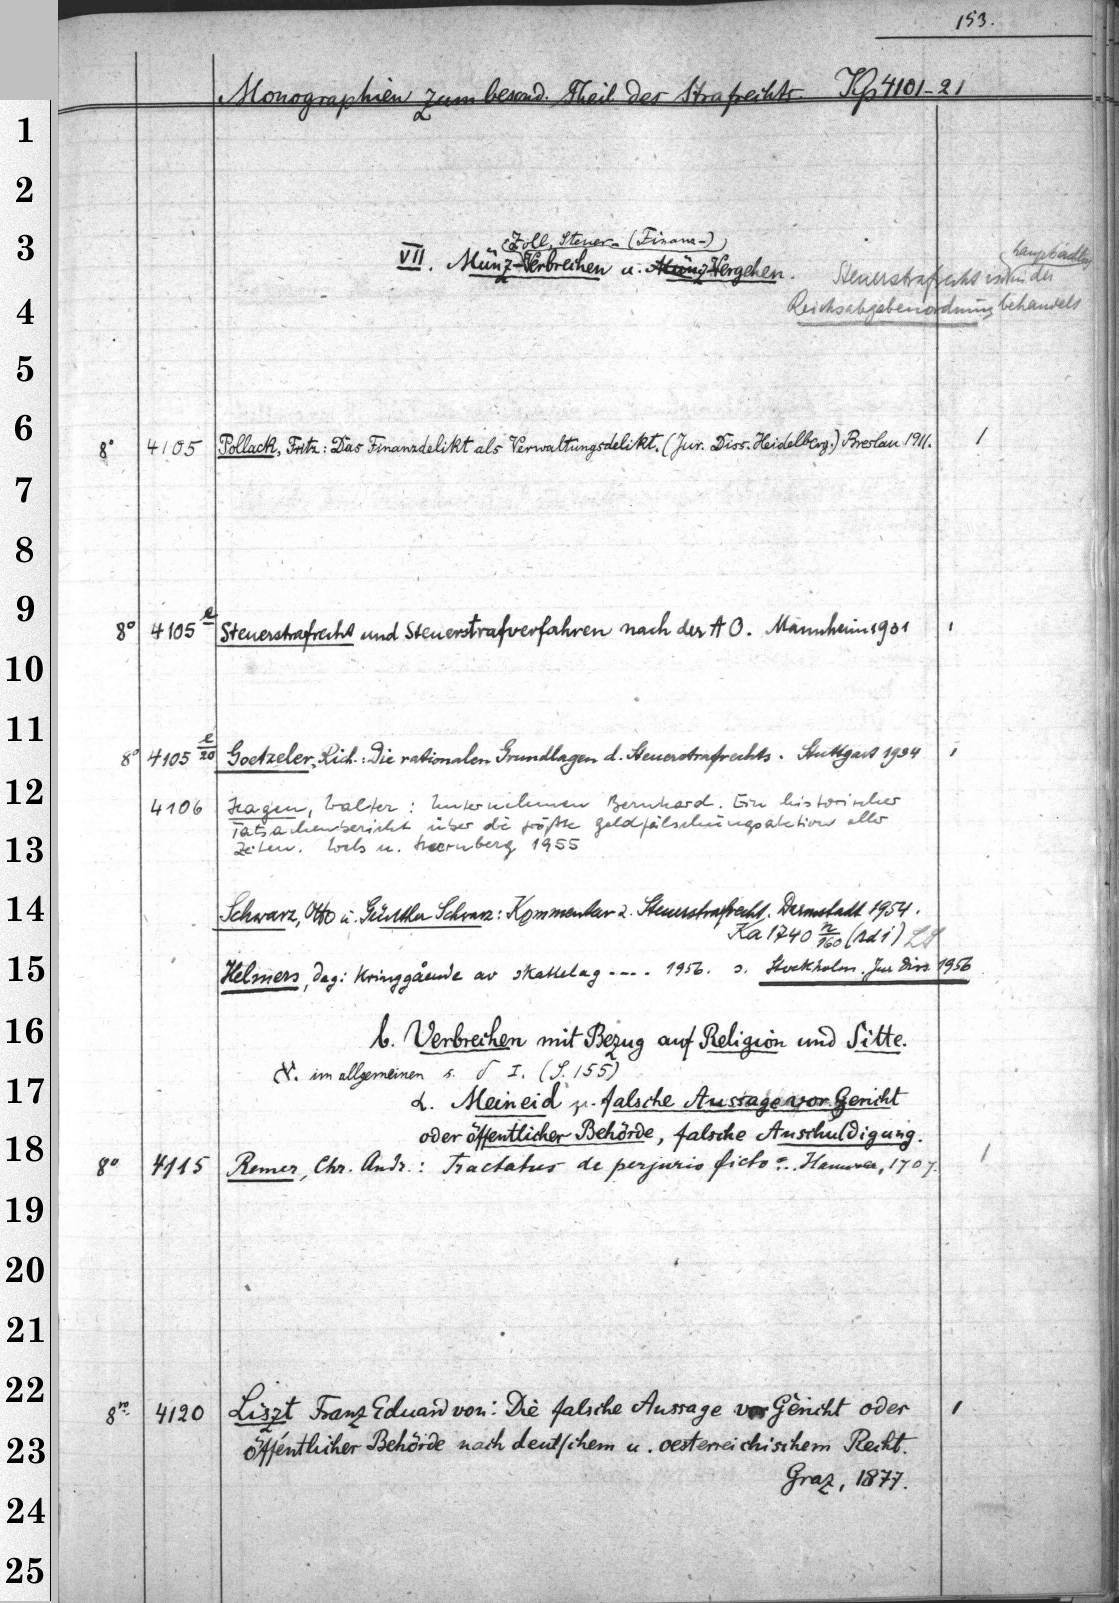 153.
Monographien zum besond. Theil des Strafrechts. Kp 4101-21
1
2
3
(Zoll, Steuer- (Finanz-)
VII. Münz-Verbrechen u. Münz-Vergehen.
hauptsächlich
Steuerstrafrecht in der
4
Reichsabgabenordnung behandelt
5
6
8° 4105 Pollack, Fritz: Das Finanzdelikt als Verwaltungsdelikt. (Jur. Diss. Heidelberg.) Breslau 1911. 1
7
8
9
8° 4105 e Steuerstrafrecht und Steuerstrafverfahren nach der AO. Mannheim 1931 1
10
11
8° 4105 e/20 Goetzeler, Rich.: Die rationalen Grundlagen d. Steuerstrafrechts. Stuttgart 1934 1
12
4106 Hagen, Walter: Unternehmen Bernhard. Ein historischer
Tatsachenbericht über die größte Geldfälschungsaktion aller
13
Zeiten. Wels u. Starnberg 1955
14
Schwarz, Otto u. Günther Schwarz: Kommentar z. Steuerstrafrecht. Darmstadt 1954.
Ka 1740 n/160 (Rd i) LS
15
Helmers, Dag: Kringgående av skattelag ---- 1956. s. Stockholm. Jur. Diss. 1956
16
b. Verbrechen mit Bezug auf Religion und Sitte.
א. im allgemeinen s. δ I. (S. 155)
17
α. Meineid falsche Aussage vor Gericht
oder öffentlicher Behörde, falsche Anschuldigung.
18
8° 4115 Remer, Chr. Andr.: Tractatus de perjurio ficto ... Hannover, 1707. 1
19
20
21
22
8° 4120 Liszt Franz Eduard von: Die falsche Aussage vor Gericht oder 1
23
öffentlicher Behörde nach deutschem u. oesterreichischem Recht.
Graz, 1877.
24
25